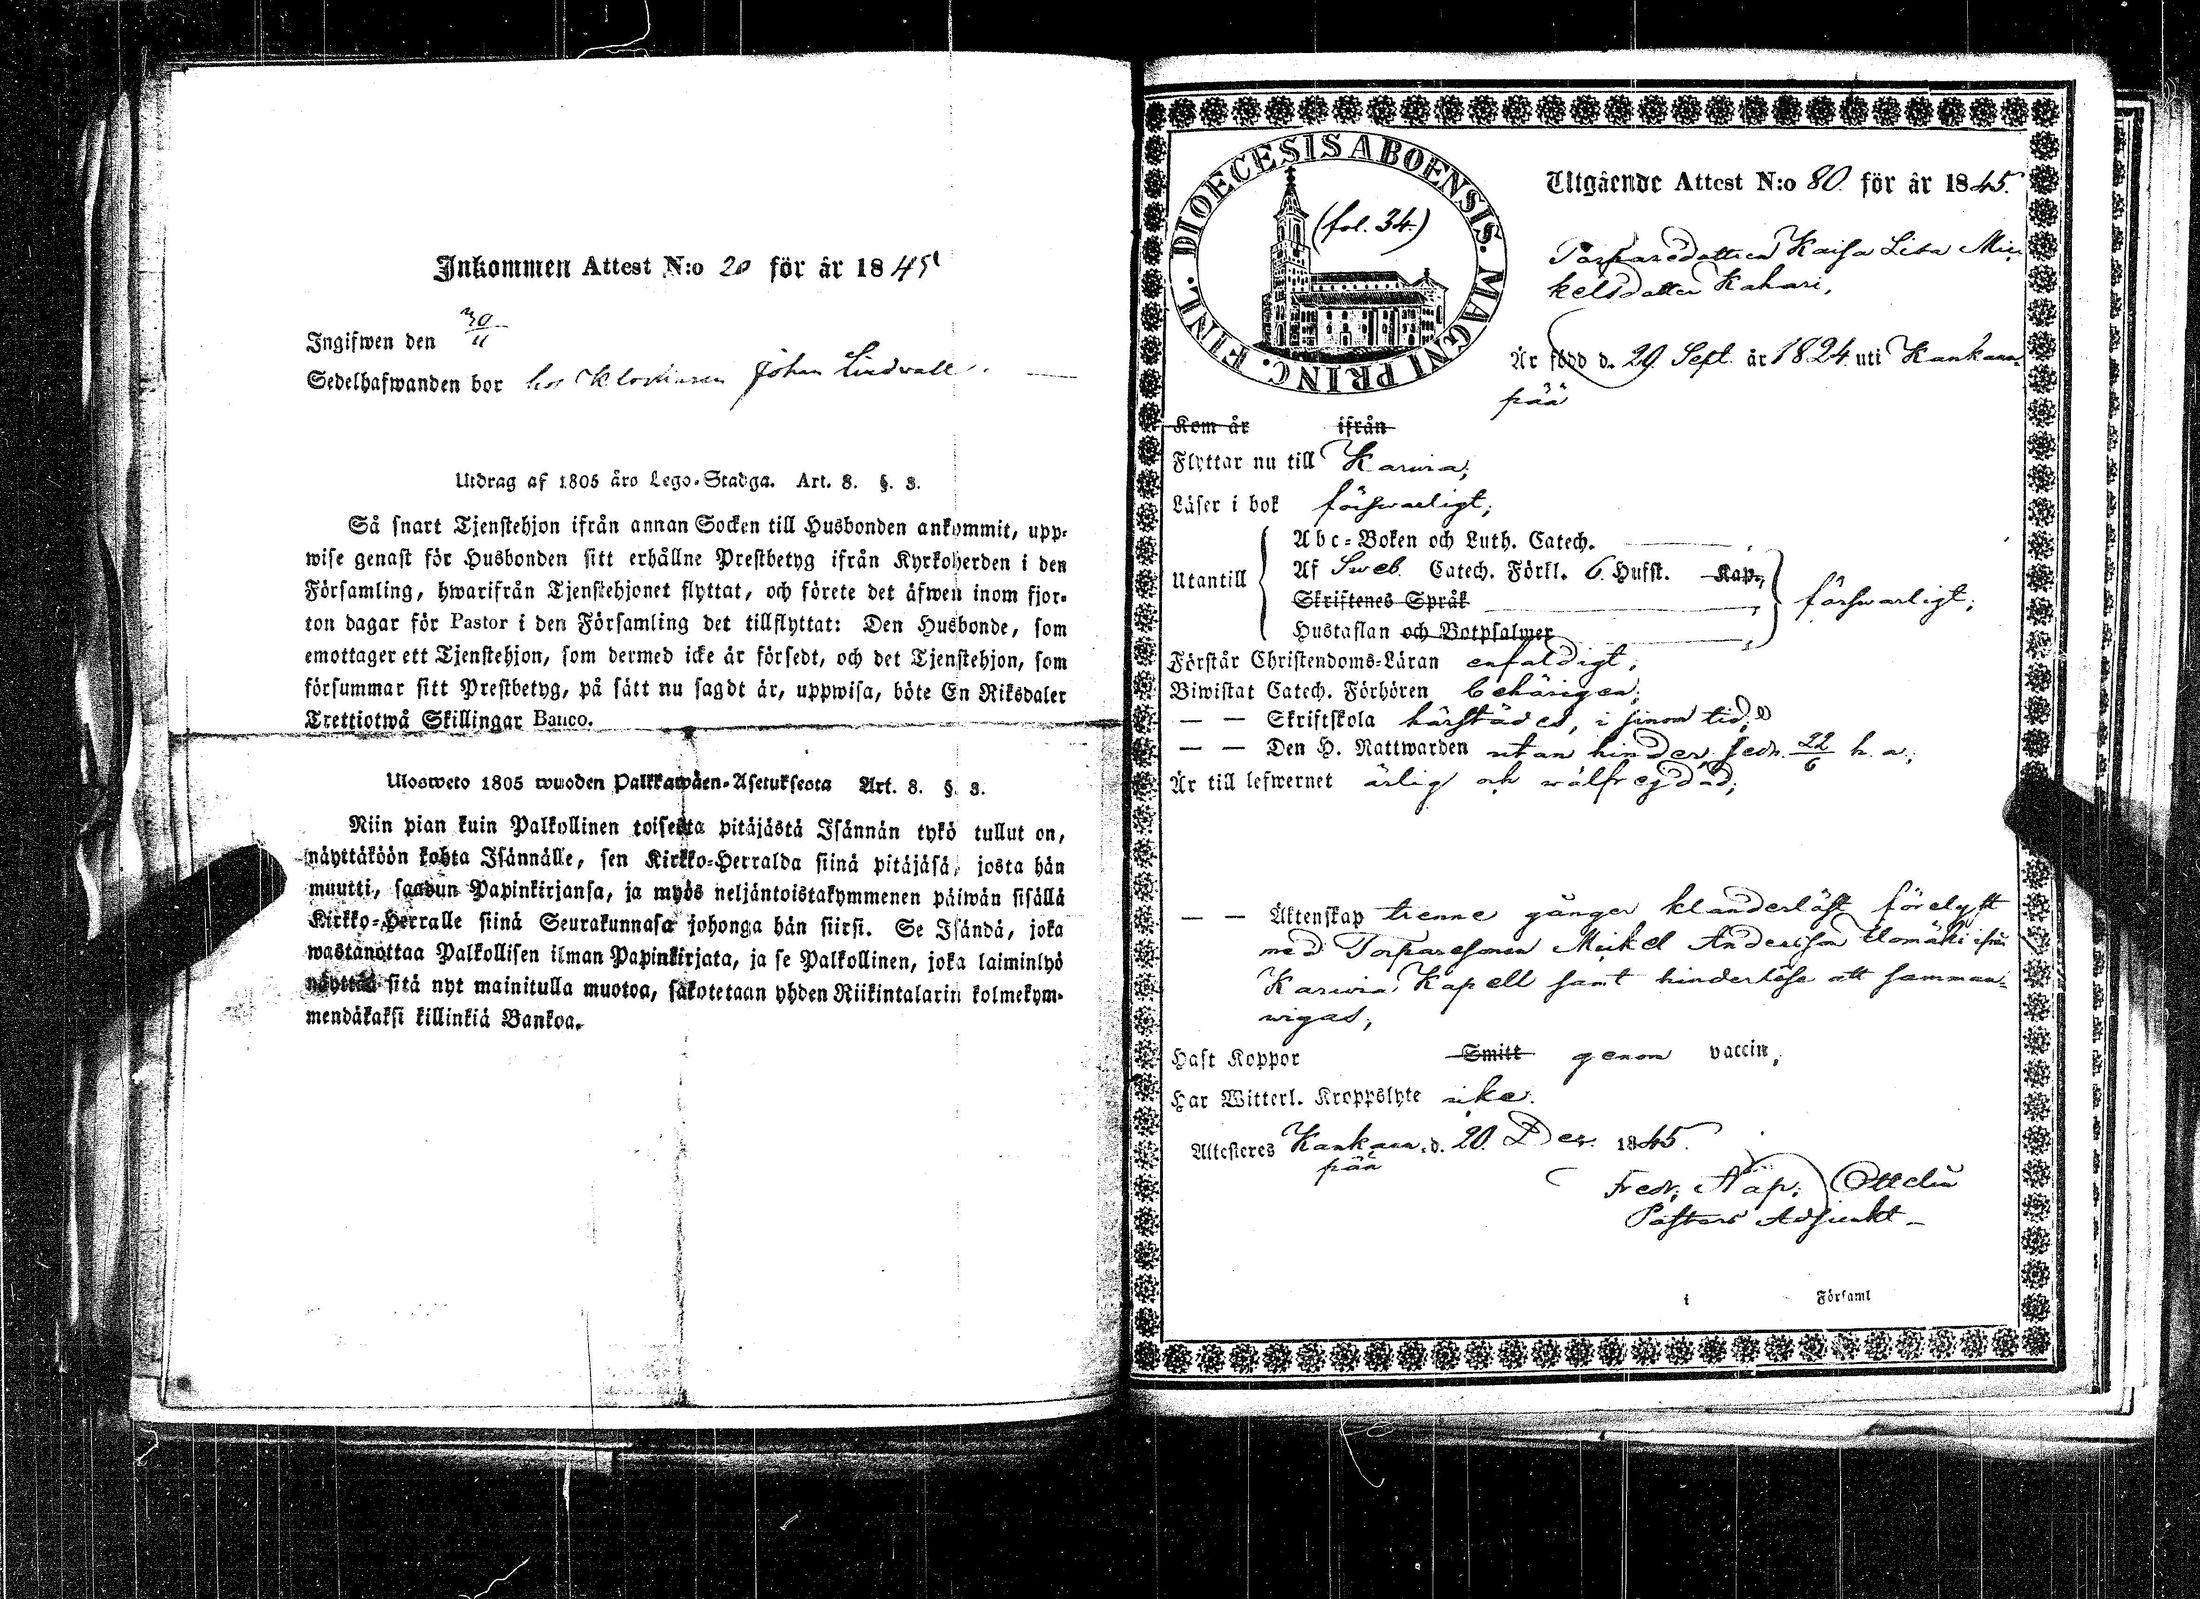 Inkommen Attest N:o 20 för år 1845
Ingifwen den 30/11
Sedelhafwanden bor hos Klockaren Johan Lindwall.
Utdrag af 1805 års Lego-Stadga. Art. 8. §. 3.
Så snart Tjenstehjon ifrån annan Socken till Husbonden ankommit, upp-
wise genast för Husbonden sitt erhållne Prestbetyg ifrån Kyrkoherden i den
Församling, hwarifrån Tjenstehjonet flyttat, och förete det äfwen inom fjor-
ton dagar för Pastor i den Församling det tillflyttat: Den Husbonde, som
emottager ett Tjenstehjon, som dermed icke är försedt, och det Tjenstehjon, som
försummar sitt Prestbetyg, på sätt nu sagdt är, uppwisa, böte En Riksdaler
Trettiotwå Skillingar Banco.
Ulosweto 1805 wuoden Palkkawäen-Asetuksesta Art. 8. §. 3.
Niin pian kuin Palkollinen toisesta pitäjästä Isännän tykö tullut on,
näyttäköön kohta Isännälle, sen Kirkko-Herralda siinä pitäjäsä, josta hän
muutti, saadun Papinkirjansa, ja myös neljäntoistakymmenen päiwän sisällä
Kirkko-Herralle siinä Seurakunnasa johonga hän siirsi. Se Isändä, joka
wastanottaa Palkollisen ilman Papinkirjata, ja se Palkollinen, joka laiminlyö
näyttää sitä nyt mainitulla muotoa, sakotetaan yhden Riikintalarin kolmekym-
mendäkaksi killinkiä Bankoa.
DIOECESIS ABOENSIS. MAGNI PRINC. FINL.
(fol. 34.)
Utgående Attest N:o 80. för år 1845.
Torparedottren Kaisa Lisa Mic-
kelsdotter Kahari,
Är född d. 29. Sept. år 1824. uti Kankan-
pää
Kom år ifrån
Flyttar nu till Karvia,
Läser i bok förswarligt;
Abc-Boken och Luth. Catech.
Utantill Af Sweb. Catech. Förkl. 6. Hufst. Kap. förswarligt;
Skriftenes Språk
Hustaflan och Botpsalmer
Förstår Christendoms-Läran enfaldigt;
Biwistat Catech. Förhören behörigen;
— — Skriftskola härstädes, i sinom tid;
— — Den H. Nattwarden utan hinder, sedn. 22/6 h. a.;
Är till lefwernet ärlig och wälfregdad;
— — Äktenskap trenne gånger klanderlöst förelyst
med Torparesonen Mickel Andersson Elomäki ifrån
Karvia Kapell samt hinderlöse att samman-
wigas;
Haft Koppor Smitt genom vaccin,
Har Witterl. Kroppslyte icke.
Attesteres Kankan- d. 20. Dec. 1845.
pää
Fredr. Nap. Ottelin
Pastors Adjunkt
i Församl